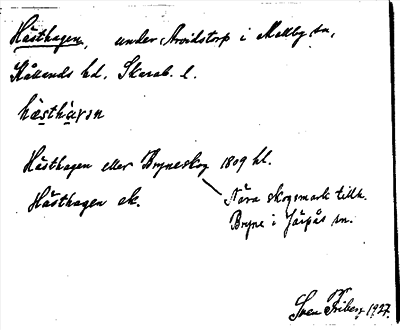 Hästhagen, under Arvidstorp i Mellby sn,
Kållands hd. Skarab. l.
hæ̀sthàɣən
Hästhagen eller Bryneskog 1809 hl.
Hästhagen ek.
Nära skogsmark tillh.
Bryne i Järpås sn.
Sven Friberg 1927.